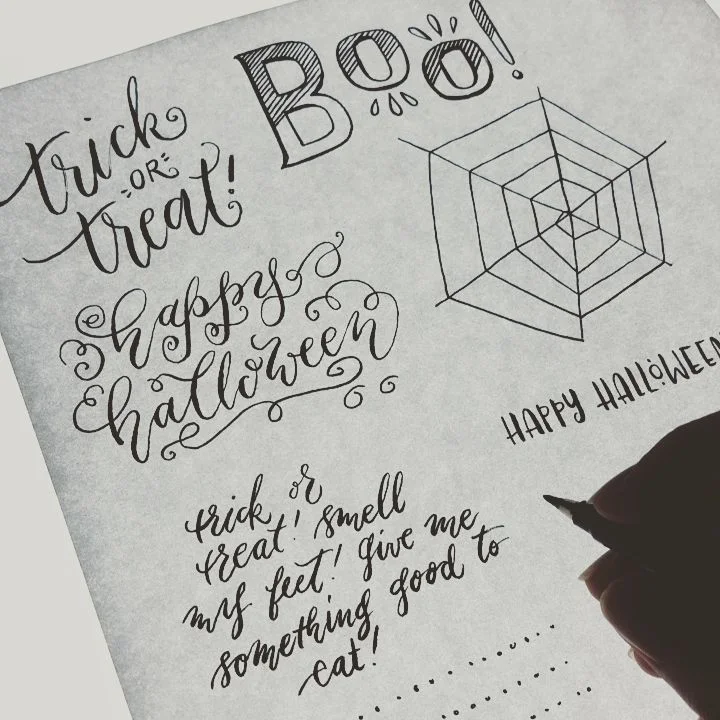 Boo!
trick
OR
treat!
happy
halloween
HAPPY HALLOWEEN
trick or
treat! smell
my feet! give me
something good to
eat!